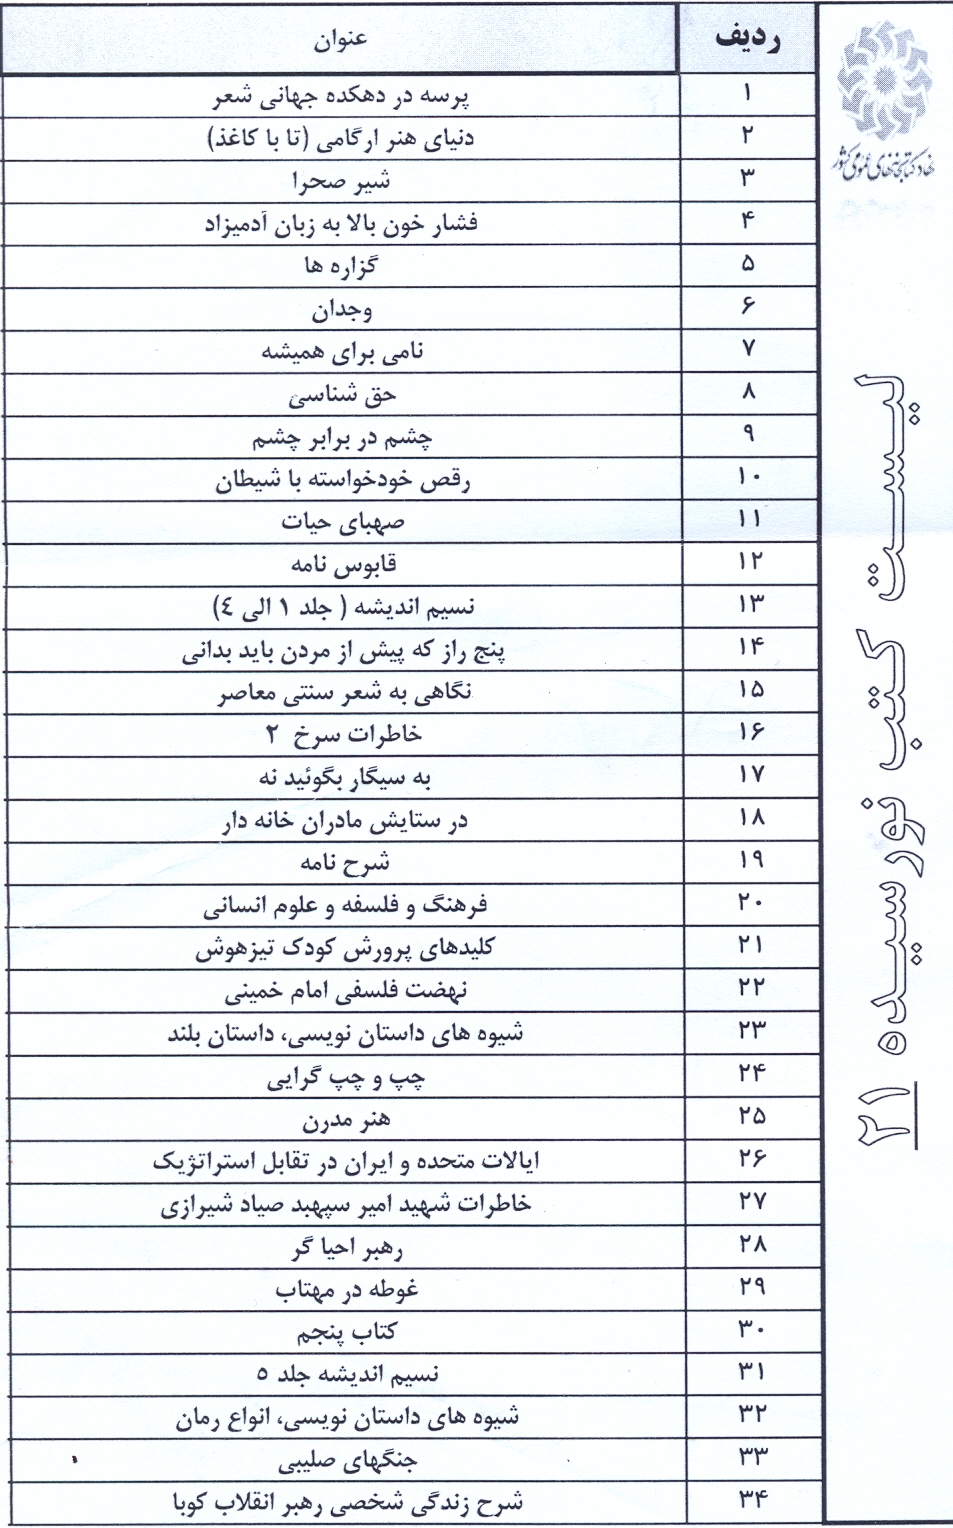 ردیف عنوان
۱ پرسه در دهکده جهانی شعر
۲ دنیای هنر ارگامی (تا با کاغذ)
۳ شیر صحرا
۴ فشار خون بالا به زبان آدمیزاد
۵ گزاره ها
۶ وجدان
۷ نامی برای همیشه
۸ حق شناسی
۹ چشم در برابر چشم
۱۰ رقص خودخواسته با شیطان
۱۱ صهبای حیات
۱۲ قابوس نامه
۱۳ نسیم اندیشه ( جلد ۱ الی ٤)
۱۴ پنج راز که پیش از مردن باید بدانی
۱۵ نگاهی به شعر سنتی معاصر
۱۶ خاطرات سرخ ۲
۱۷ به سیگار بگوئید نه
۱۸ در ستایش مادران خانه دار
۱۹ شرح نامه
۲۰ فرهنگ و فلسفه و علوم انسانی
۲۱ کلیدهای پرورش کودک تیزهوش
۲۲ نهضت فلسفی امام خمینی
۲۳ شیوه های داستان نویسی، داستان بلند
۲۴ چپ و چپ گرایی
۲۵ هنر مدرن
۲۶ ایالات متحده و ایران در تقابل استراتژیک
۲۷ خاطرات شهید امیر سپهبد صیاد شیرازی
۲۸ رهبر احیا گر
۲۹ غوطه در مهتاب
۳۰ کتاب پنجم
۳۱ نسیم اندیشه جلد ٥
۳۲ شیوه های داستان نویسی، انواع رمان
۳۳ جنگهای صلیبی
۳۴ شرح زندگی شخصی رهبر انقلاب کوبا
نهاد کتابخانه‌های عمومی کشور
لیست کتب نورسیده ۲۱